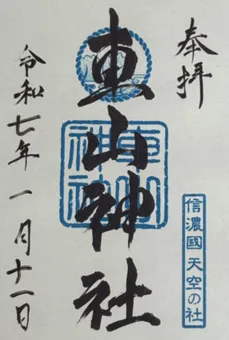 奉拝
信濃國 天空の社
東山神社
東山神社
令和七年一月十一日